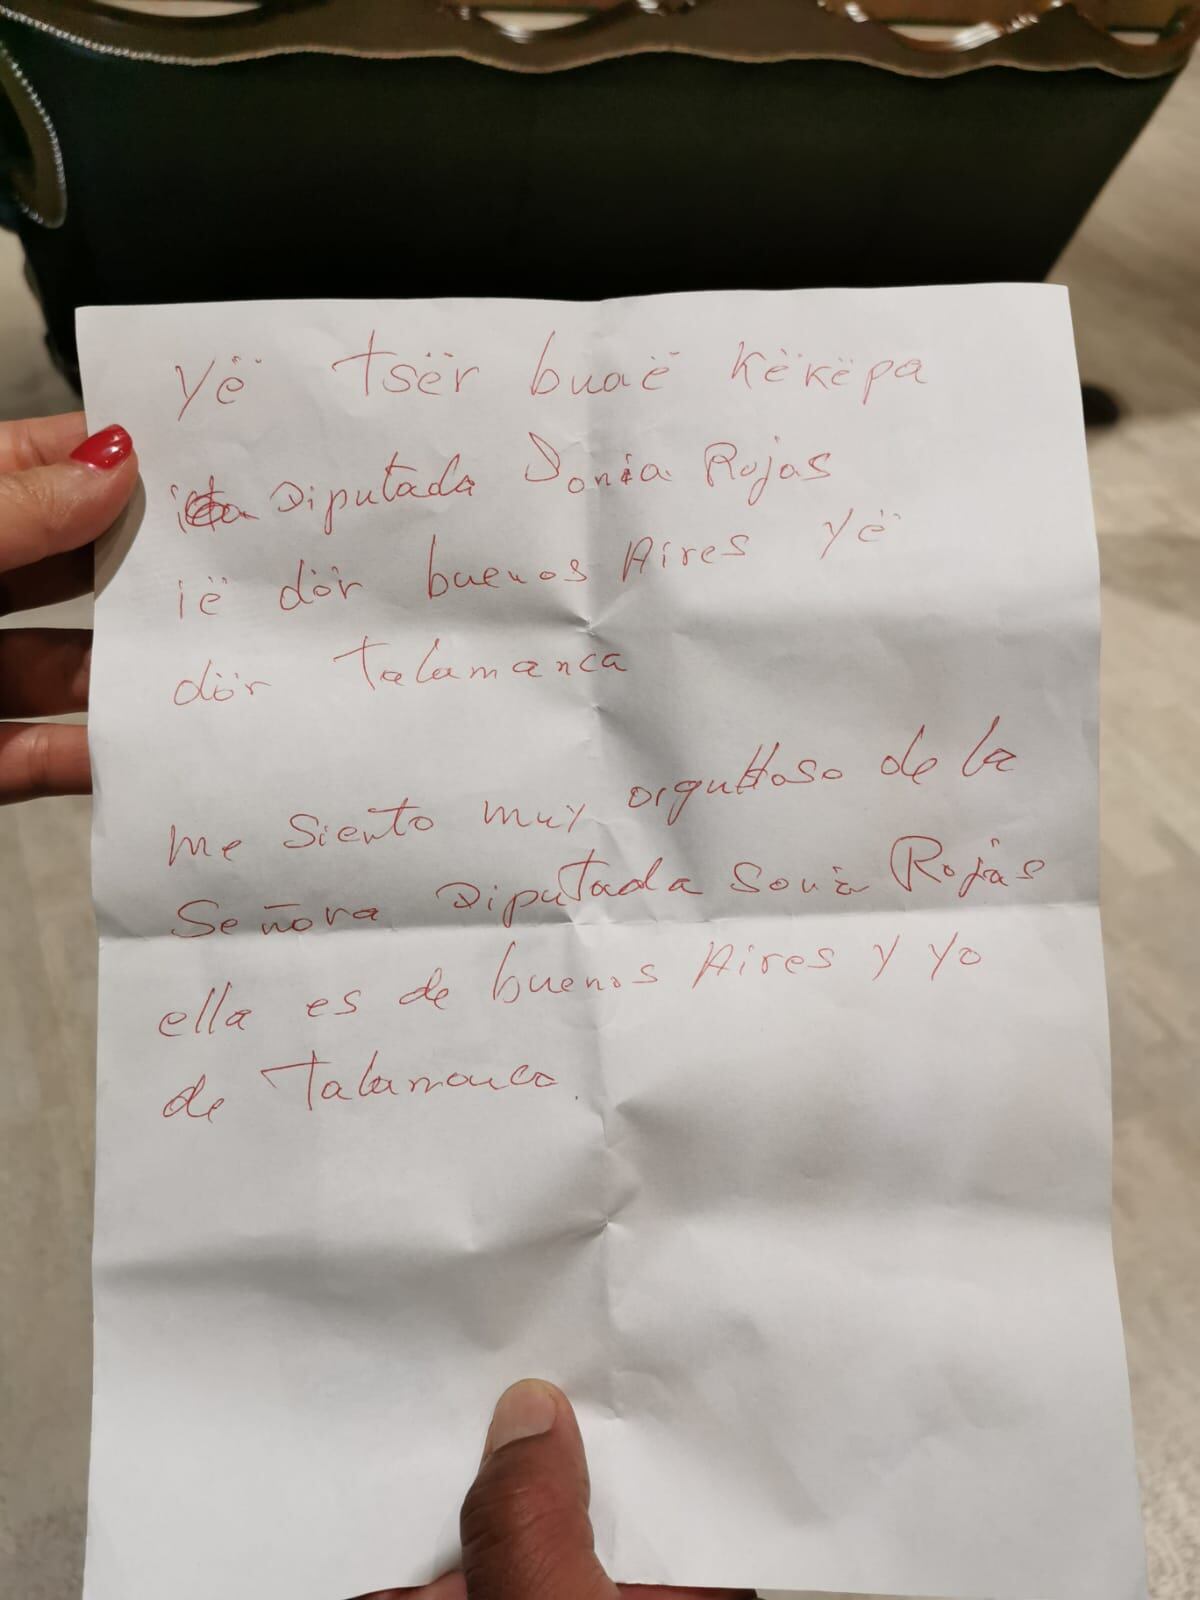 Yë tsër buaë këkëpa
Diputada Sonia Rojas
ië dör buenos Aires yë
dör Talamanca
me siento muy orgulloso de la
Señora Diputada Sonia Rojas
ella es de buenos Aires y yo
de Talamanca.